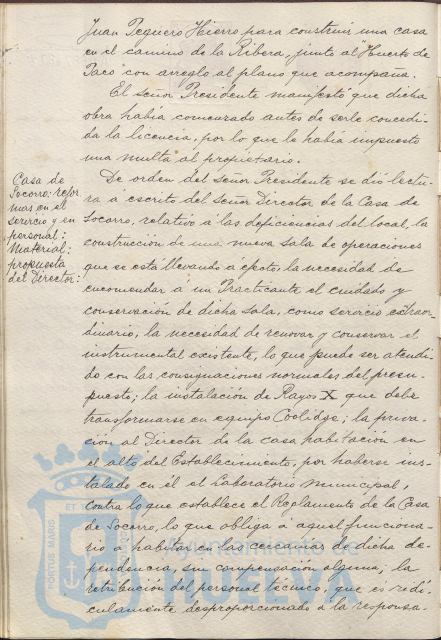 Juan Peguero Hierro para construir una casa
en el camino de la Ribera, junto al "Huerto de
Paco" con arreglo al plano que acompaña.
El señor Presidente manifestó que dicha
obra había comenzado antes de serle concedi-
da la licencia, por lo que le había impuesto
una multa al propietario.
Casa de
Socorro: refor
mas en el
servicio y en
personal:
Material:
propuesta
del Director:
De orden del señor Presidente se dió lectu-
ra a escrito del señor Director de la Casa de
Socorro, relativo á las deficiencias del local, la
construcción de una nueva sala de operaciones
que se está llevando á efecto; la necesidad de
encomendar á un Practicante el cuidado y
conservación de dicha sala, como servicio extraor-
dinario, la necesidad de renovar y conservar el
instrumental existente, lo que puede ser atendi-
do con las consignaciones normales del presu-
puesto; la instalación de Rayos X que debe
transformarse en equipo Coolidge; la priva-
ción al Director de la casa habitación en
el alto del Establecimiento, por haberse ins-
talado en él el Laboratorio municipal,
contra lo que establece el Reglamento de la Casa
de Socorro, lo que obliga á aquel funciona-
rio a habitar en las cercanías de dicha de-
pendencia, sin compensación alguna; la
retribución del personal técnico, que es ridí-
culamente desproporcionado a la responsa-
PORTUS MARIS
ET TE
Ayuntamiento de
HUELVA